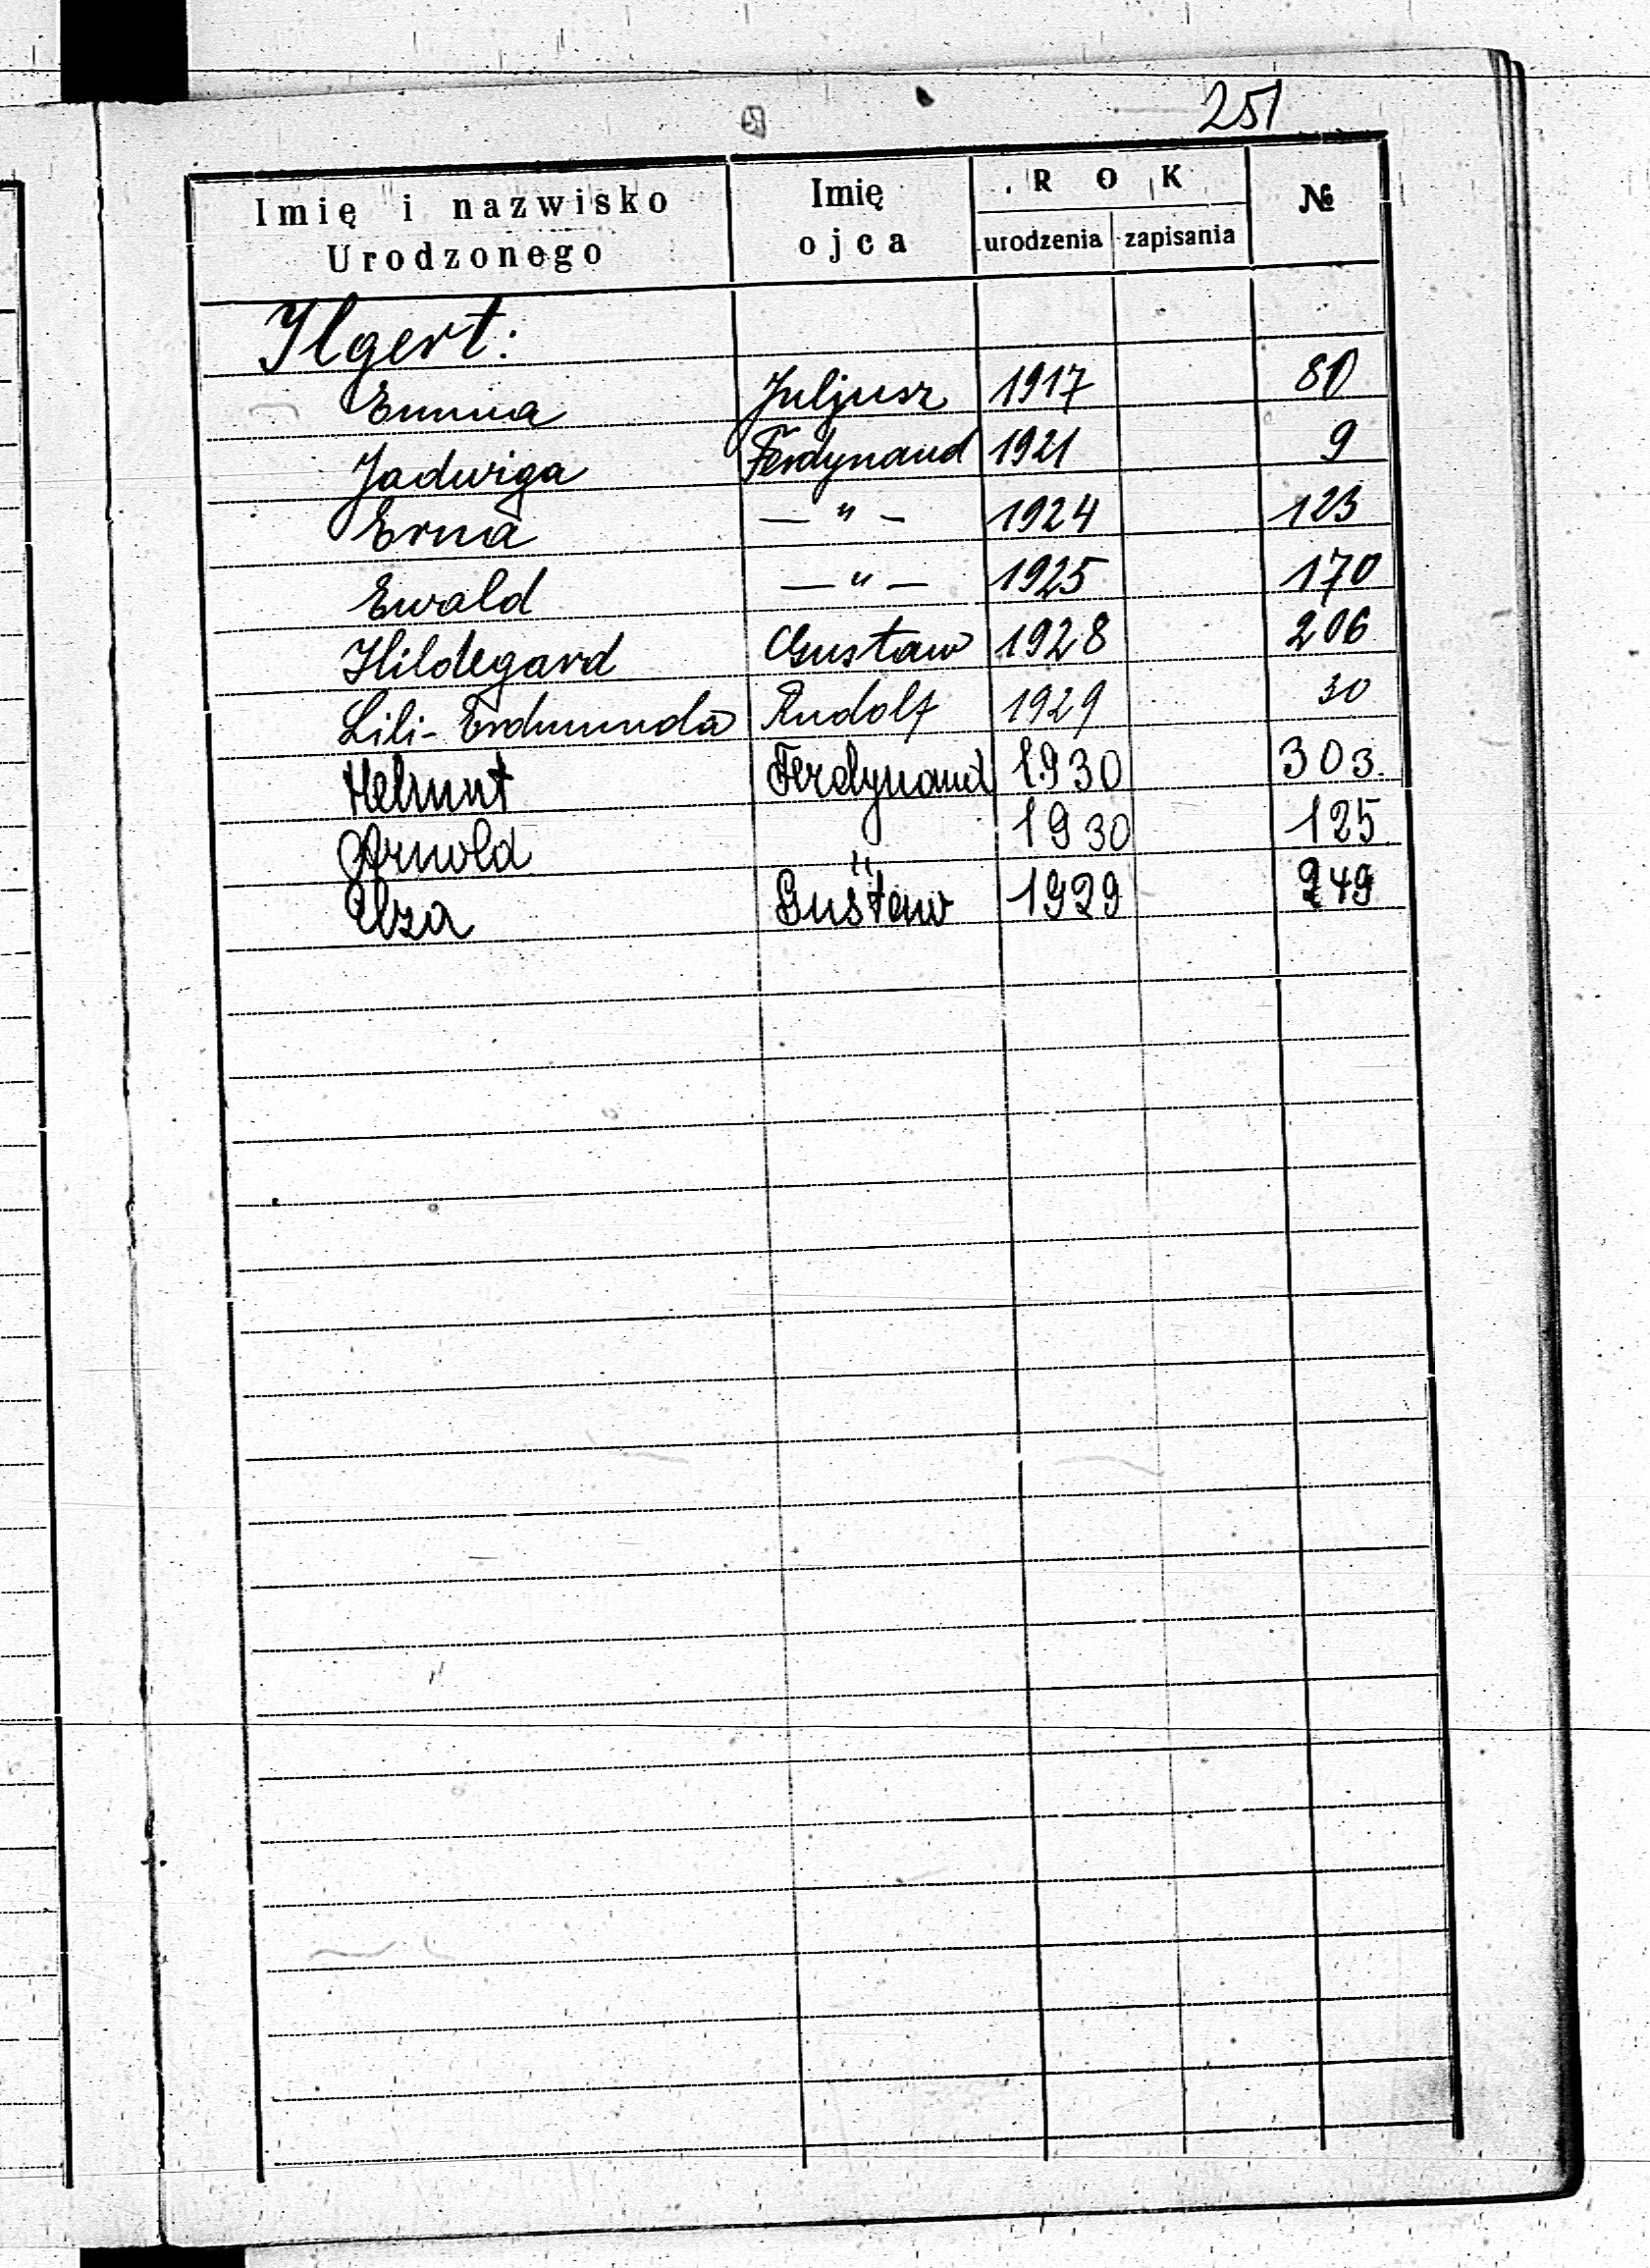 251
Imię i nazwisko Urodzonego | Imię ojca | ROK urodzenia | zapisania | №
Ilgert:
Emma Juljusz 1917 80
Jadwiga Ferdynand 1921 9
Erna — " — 1924 123
Ewald — " — 1925 170
Hildegard Gustaw 1928 206
Lili-Erdmunda Rudolf 1929 30
Helmut Ferdynand 1930 303
Arnold " 1930 125
Elza Gustaw 1929 249